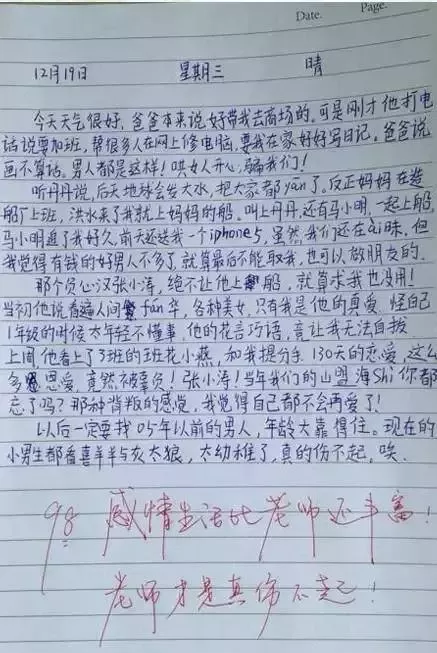 Date. Page.
12月19日 星期三 晴
今天天气很好,爸爸本来说好带我去商场的。可是刚才他打电
话说要加班,帮很多人在网上修电脑,要我在家好好写日记。爸爸说
画不算话。男人都是这样!哄女人开心,骗我们!
听丹丹说,后天地球会发大水,把大家都yān了。反正妈妈在造
船厂上班,洪水来了我就上妈妈的船。叫上丹丹,还有马小明,一起上船,
马小明追了我好久,前天还送我一个iphone5,虽然我们还在暧昧,但
我觉得有钱的好男人不多了,就算最后不能取我,也可以做朋友的。
那个负心汉张小涛,绝不让他上船,就算求我也没用!
当初他说看遍人间fán华,各种美女,只有我是他的真爱。怪自己
1年级的时候太年轻不懂事,他的花言巧语,竟让我无法自拔
上周他看上了3班的班花小燕,和我提分手。130天的恋爱,这么
多恩爱,竟然被辜负!张小涛!当年我们的山盟海Shi你都
忘了吗?那种背叛的感觉,我觉得自己都不会再爱了!
以后一定要找05年以前的男人,年龄大靠得住。现在的
小男生都看喜羊羊与灰太狼,太幼稚了,真的伤不起,唉。
98 感情生活比老师还丰富!
老师才是真伤不起!